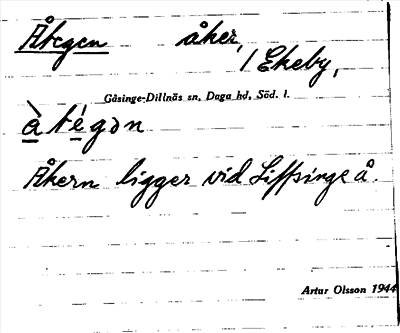 Åtegen åker,
/ Ekeby,
Gåsinge-Dillnäs sn, Daga hd, Söd. l.
à tégən
Åkern ligger vid Liffsinge å.
Artur Olsson 1944